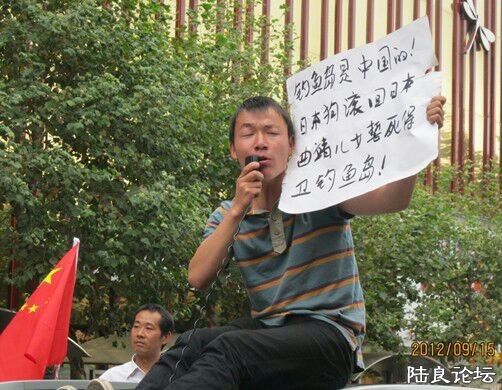 钓鱼岛是中国的!
日本狗滚回日本
曲靖儿女誓死保
卫钓鱼岛!
2012/09/15
陆良论坛